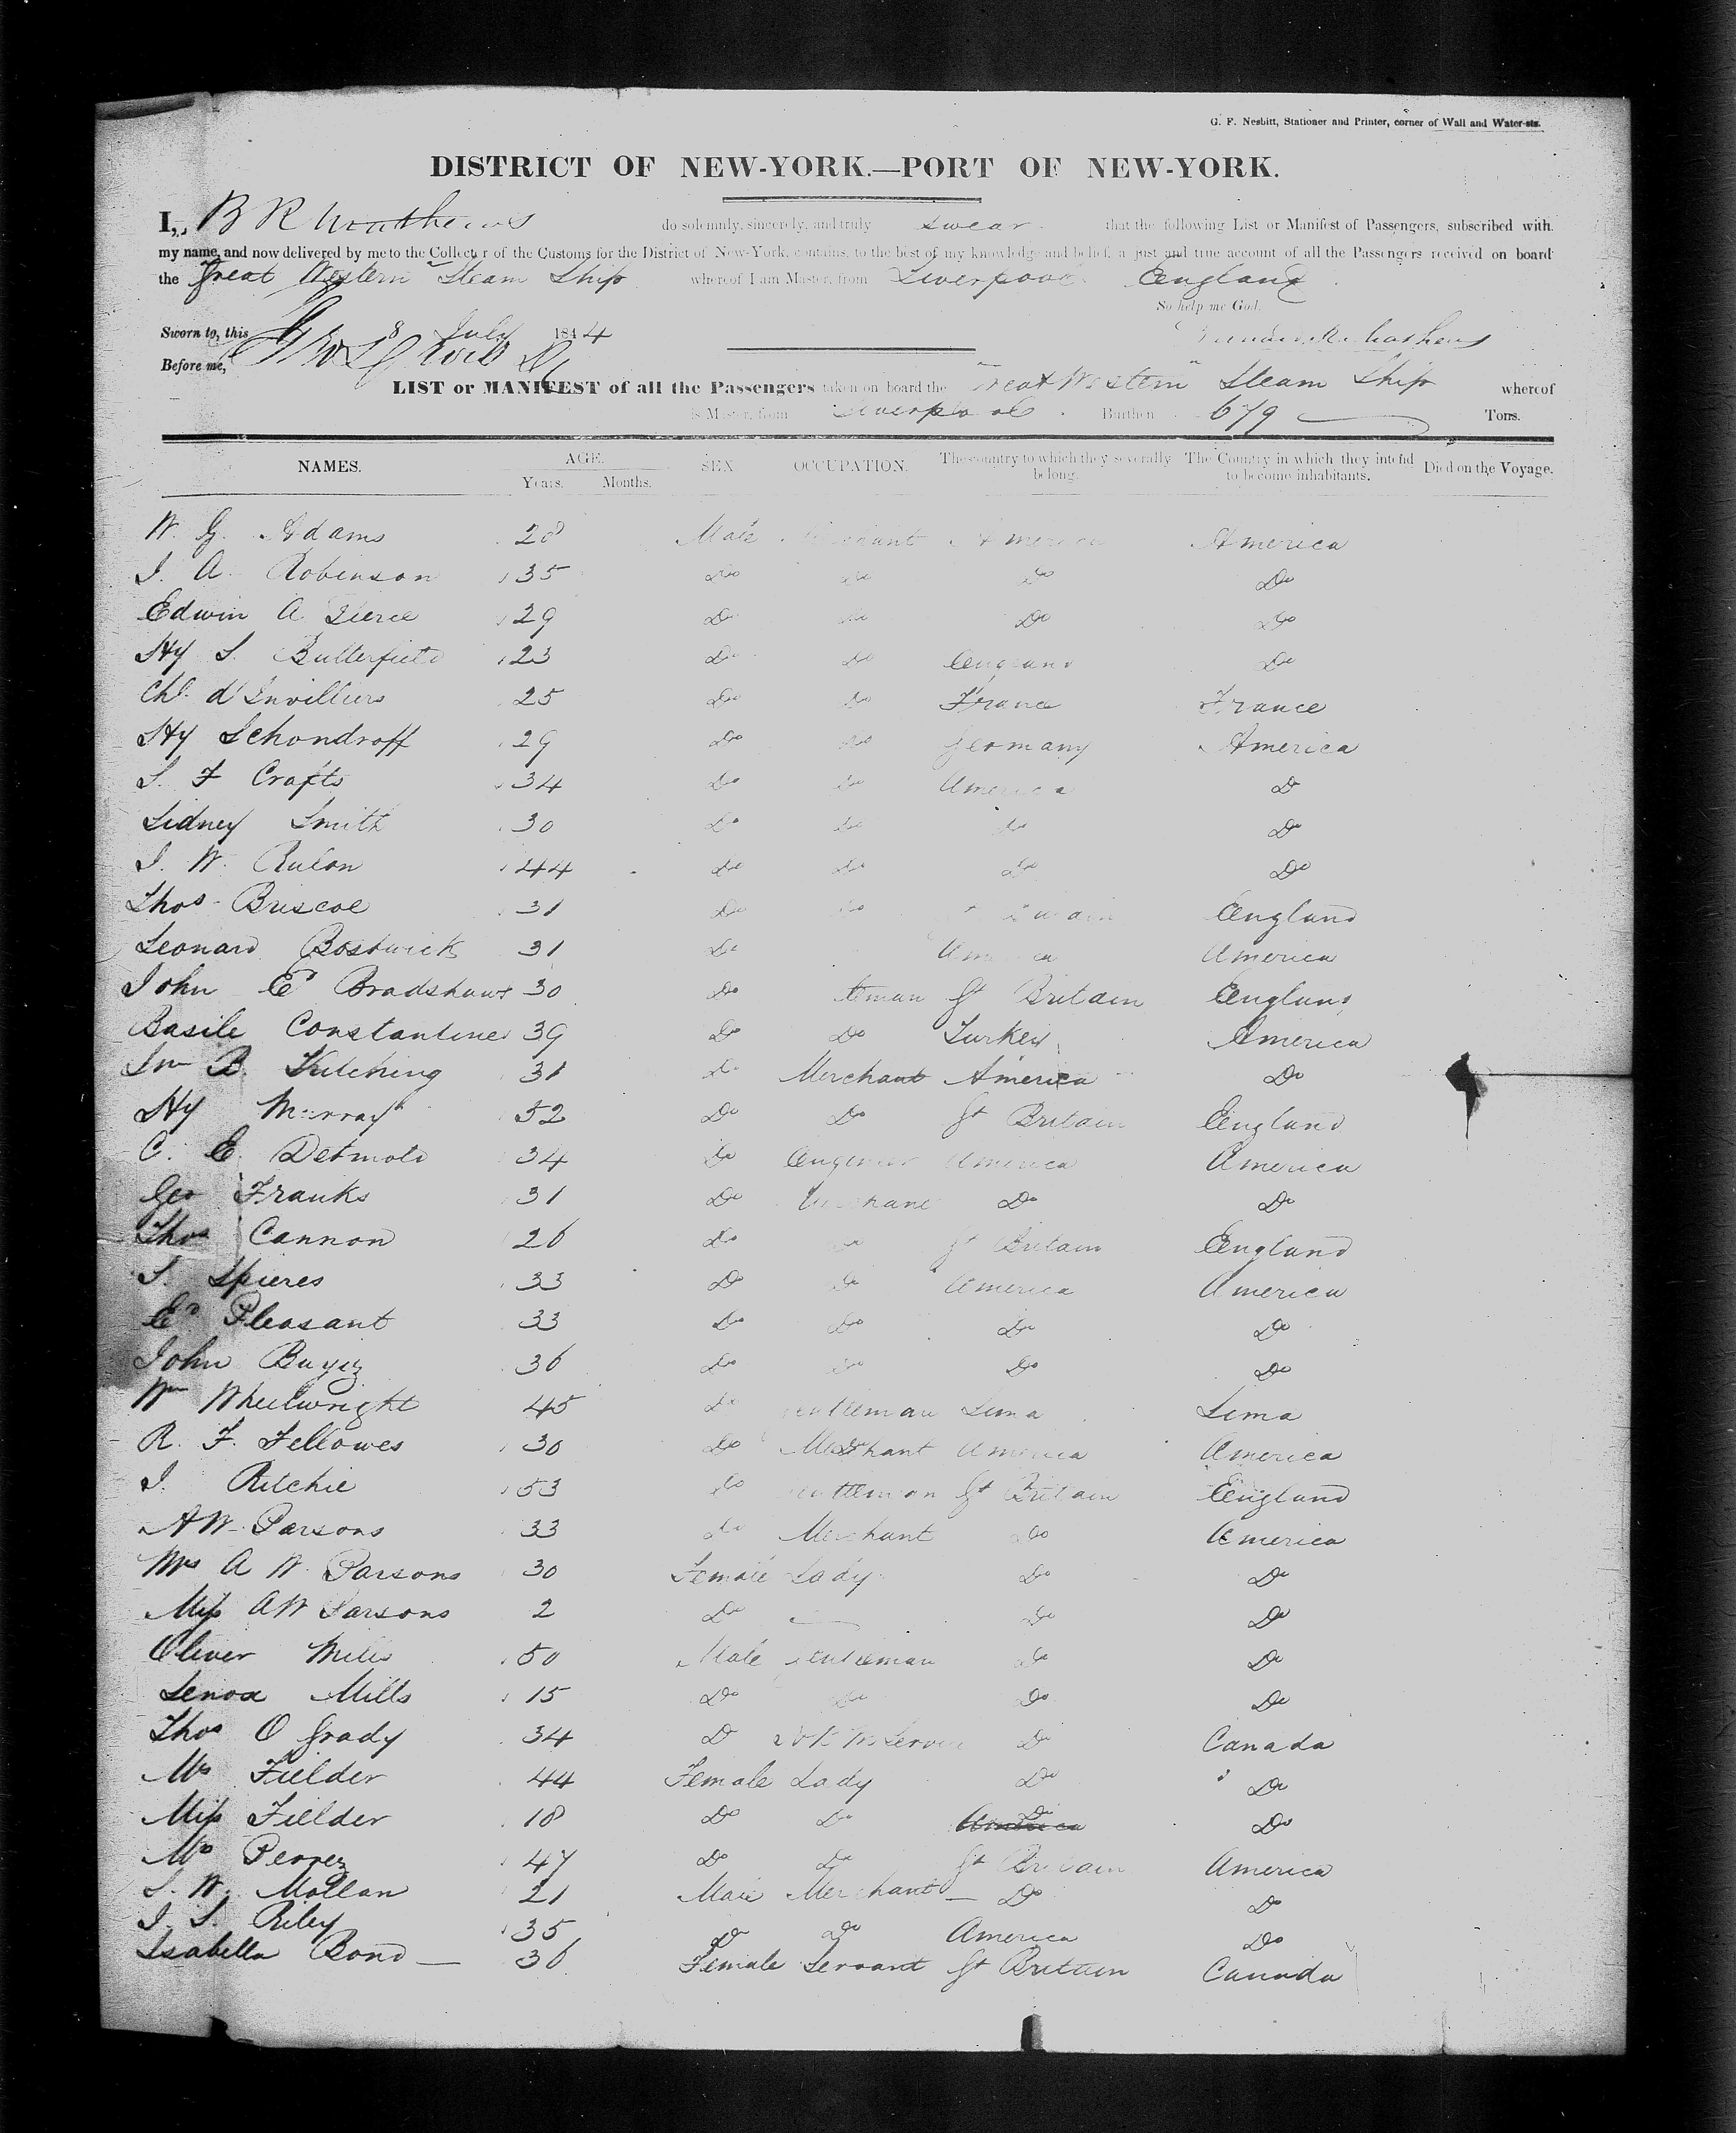 G. F. Nesbitt, Stationer and Printer, corner of Wall and Water-sts.
DISTRICT OF NEW-YORK.—PORT OF NEW-YORK.
I, B R Matthews do solemnly, sincerely, and truly swear that the following List or Manifest of Passengers, subscribed with
my name, and now delivered by me to the Collector of the Customs for the District of New-York, contains, to the best of my knowledge and belief, a just and true account of all the Passengers received on board
the Great Western Steam Ship whereof I am Master, from Liverpool England
So help me God.
Sworn to, this 8 July 1844
Before me,
LIST or MANIFEST of all the Passengers taken on board the Great Western Steam Ship whereof
is Master, from Liverpool Burthen 679 Tons.
NAMES. AGE. SEX OCCUPATION. The country to which they severally belong. The Country in which they intend to become inhabitants. Died on the Voyage.
Years. Months.
W. G. Adams 28 Male Merchant America America
J. A. Robinson 35 Do Do Do Do
Edwin A Pierce 29 Do Do Do Do
Hy S. Butterfield 23 Do Do England Do
Chs. d'Invilliers 25 Do Do France France
Hy Schondroff 29 Do Do Germany America
S. F Crafts 34 Do Do America Do
Sidney Smith 30 Do Do Do Do
J. W. Rulon 44 Do Do Do Do
Thos Briscoe 31 Do Do Gt Britain England
Leonard Bostwick 31 Do America America
John Ed Bradshaw 30 Do Gt Britain England
Basile Constantine 39 Do Do Turkey America
Jno B. Kitching 31 Do Merchant America Do
Hy Murray 52 Do Do Gt Britain England
C. E. Detmold 34 Do Engineer America America
Geo Franks 31 Do Merchant Do Do
Thos Cannon 26 Do Do Gt Britain England
S. Spieres 33 Do Do America America
Ed Pleasant 33 Do Do Do Do
John 36 Do Do Do Do
Wm Wheelwright 45 Do Gentleman Lima Lima
R. F. Fellowes 30 Do Merchant America America
J. Ritchie 53 Do Gentleman Gt Britain England
A W Parsons 33 Do Merchant Do America
Mrs A W Parsons 30 Female Lady Do Do
Miss A W Parsons 2 Do — Do Do
Oliver Mills 50 Male Gentleman Do Do
Lenox Mills 15 Do Do Do Do
Thos O Grady 34 Do Do Canada
Mrs Fielder 44 Female Lady Do Do
Miss Fielder 18 Do Do America Do Do
Mrs Perrez 47 Do Do Gt Britain America
S. W. Mollan 21 Male Merchant Do Do
J. S. Riley 35 Do Do America Do
Isabella Bond 36 Female Servant Gt Britain Canada